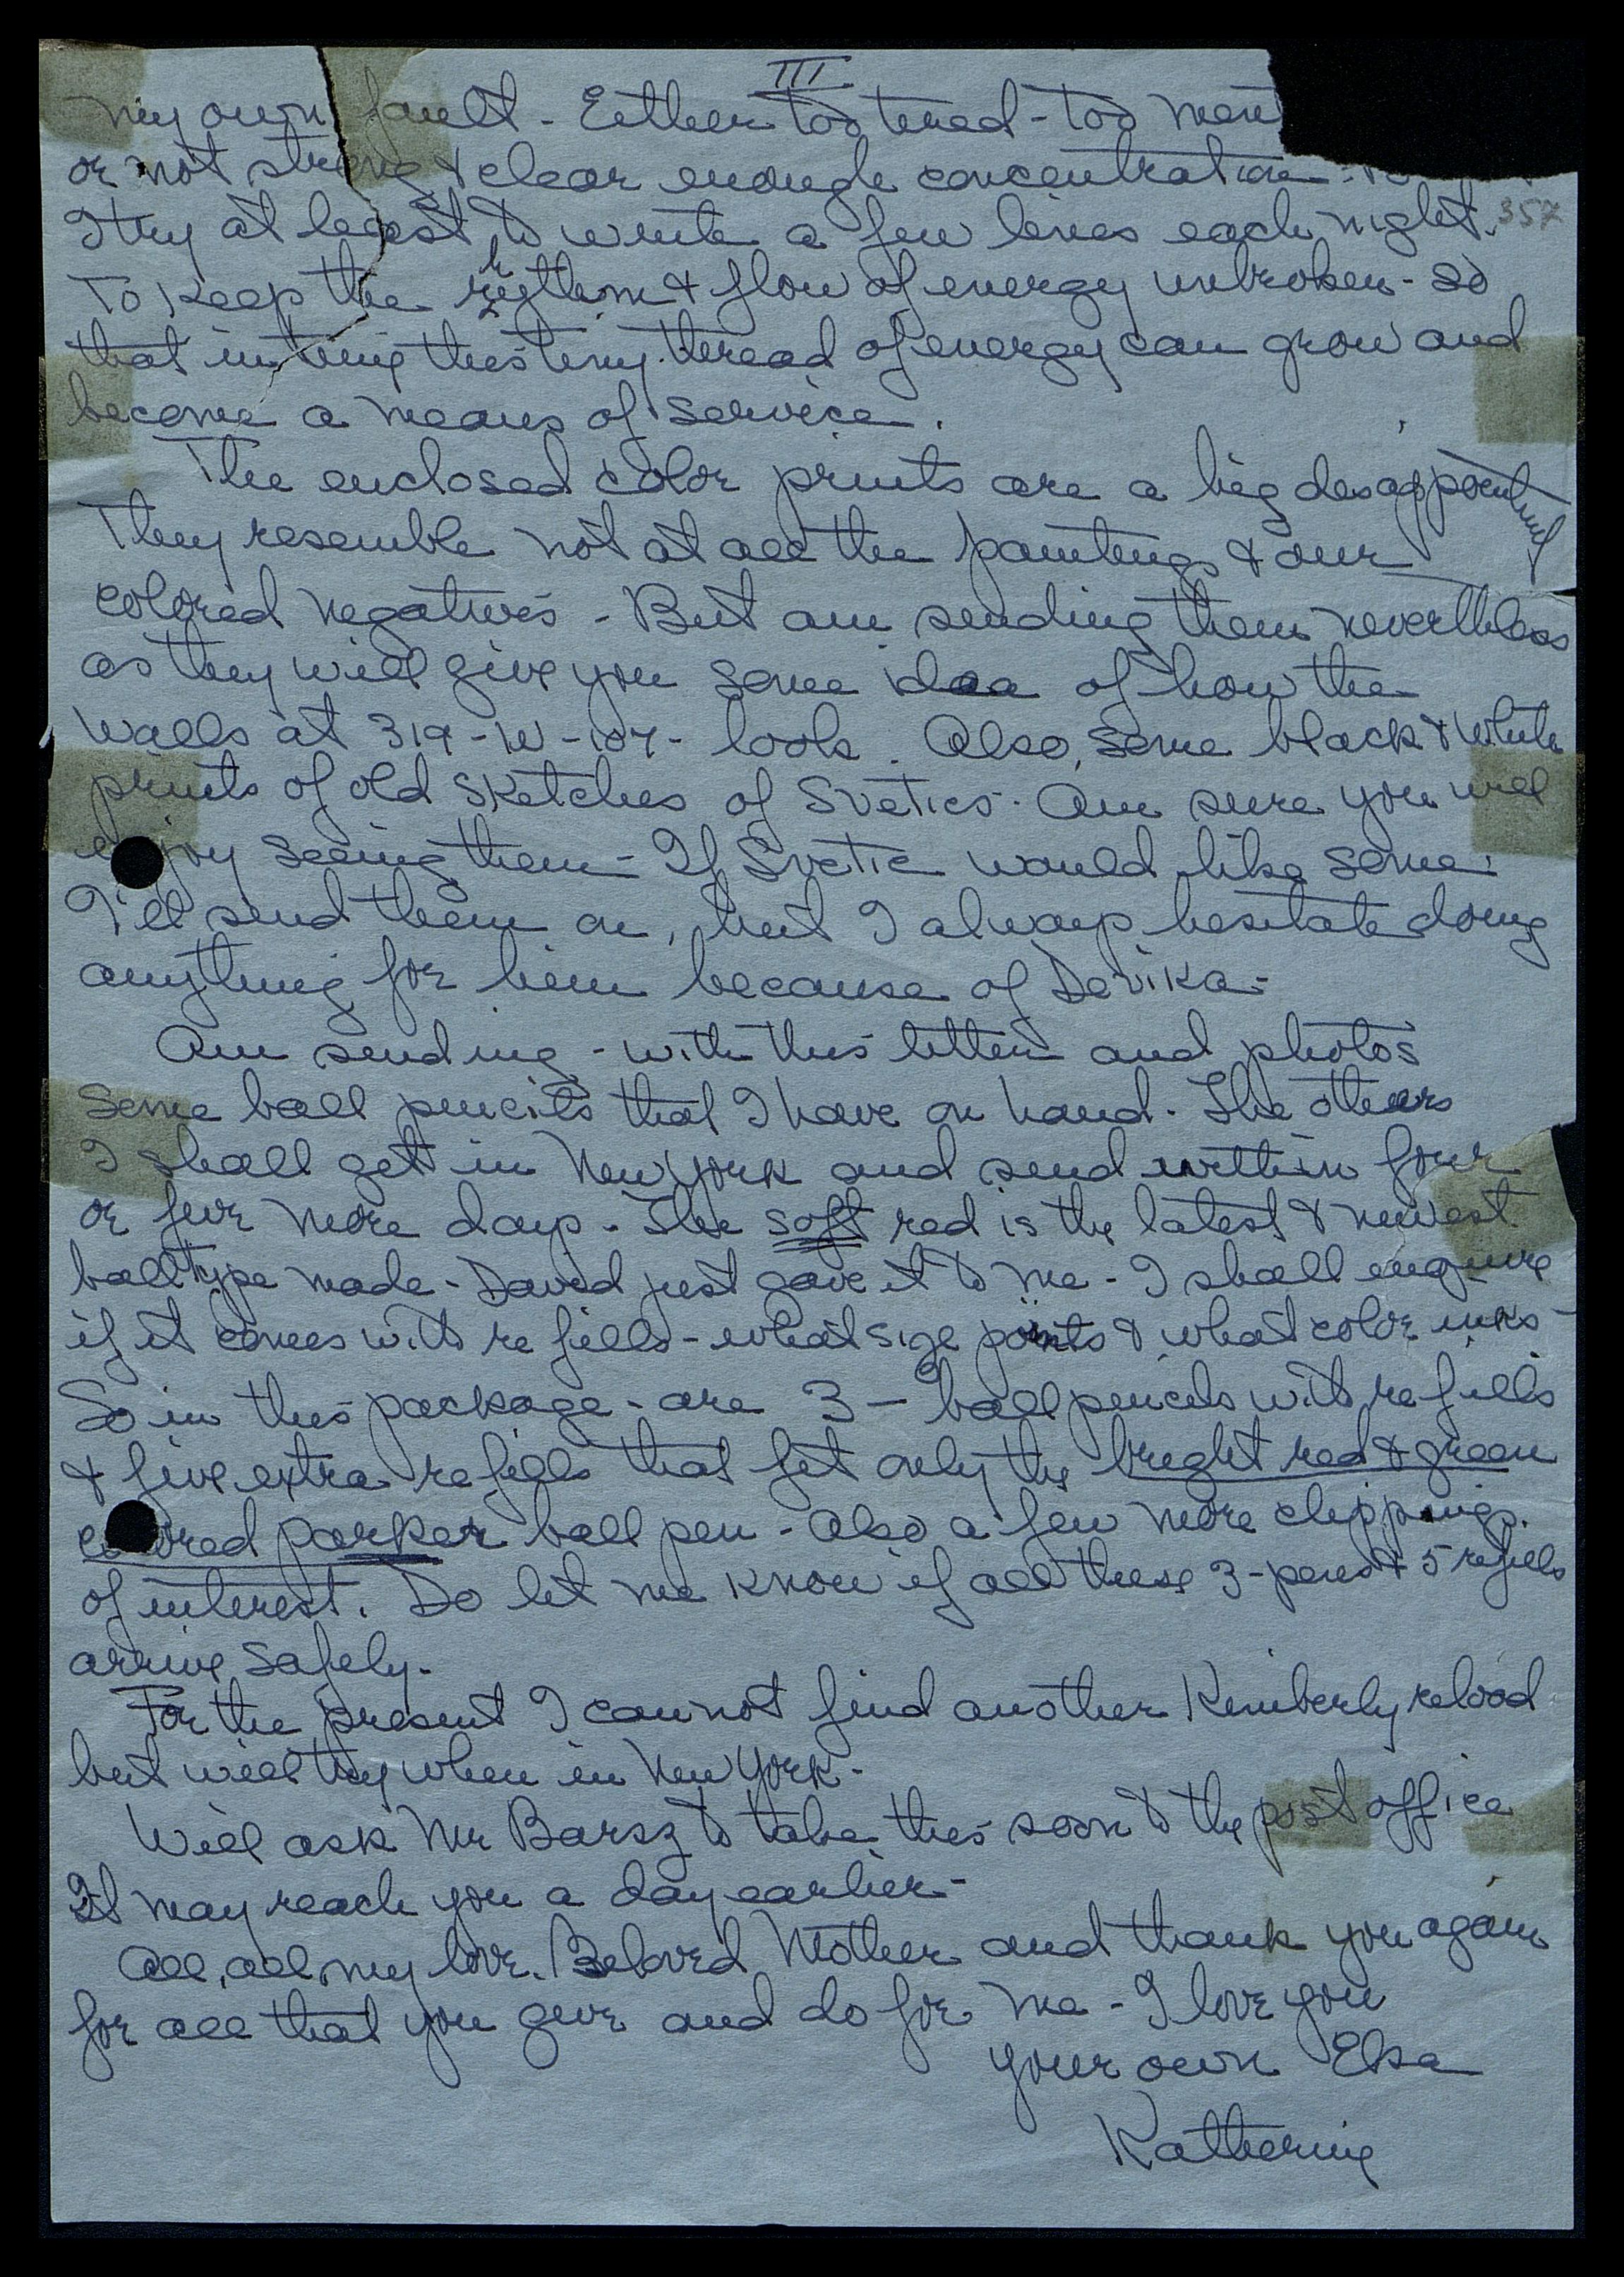 III
my own fault - Either too tired - too
or not strong & clear enough concentration
I try at least to write a few lines each night. 357
To keep the rhythm & flow of energy unbroken - so
that in time this tiny thread of energy can grow and
become a means of service.
The enclosed color prints are a big disappointment
They resemble not at all the paintings & our
colored negatives - But am sending them neverthless
as they will give you some idea of how the
walls at 319-W-107- look. Also, some black & white
prints of old sketches of Svetics. Am sure you will
enjoy seeing them - If Svetic would like some.
I'll send them on, but I always hesitate doing
anything for him because of Devika -
Am sending - with this letter and photos
some ball pencils that I have on hand. The others
I shall get in New York and send within four
or five more days. The soft red is the latest & newest
ball type made - David just gave it to me - I shall enquire
if it comes with refills - what size points & what color inks -
So in this package - are 3 - ball pencils with refills
& five extra refills that fit only the bright red & green
colored parker ball pen - Also a few more clippings.
of interest. Do let me know if all these 3-pens & 5 refills
arrive safely.
For the present I cannot find another Kimberly reload
but will try when in New York -
Will ask Mr Barsz to take this soon to the post office
It may reach you a day earlier -
All, all my love. Beloved Mother and thank you again
for all that you give and do for me - I love you
your own Elsa
Katherine